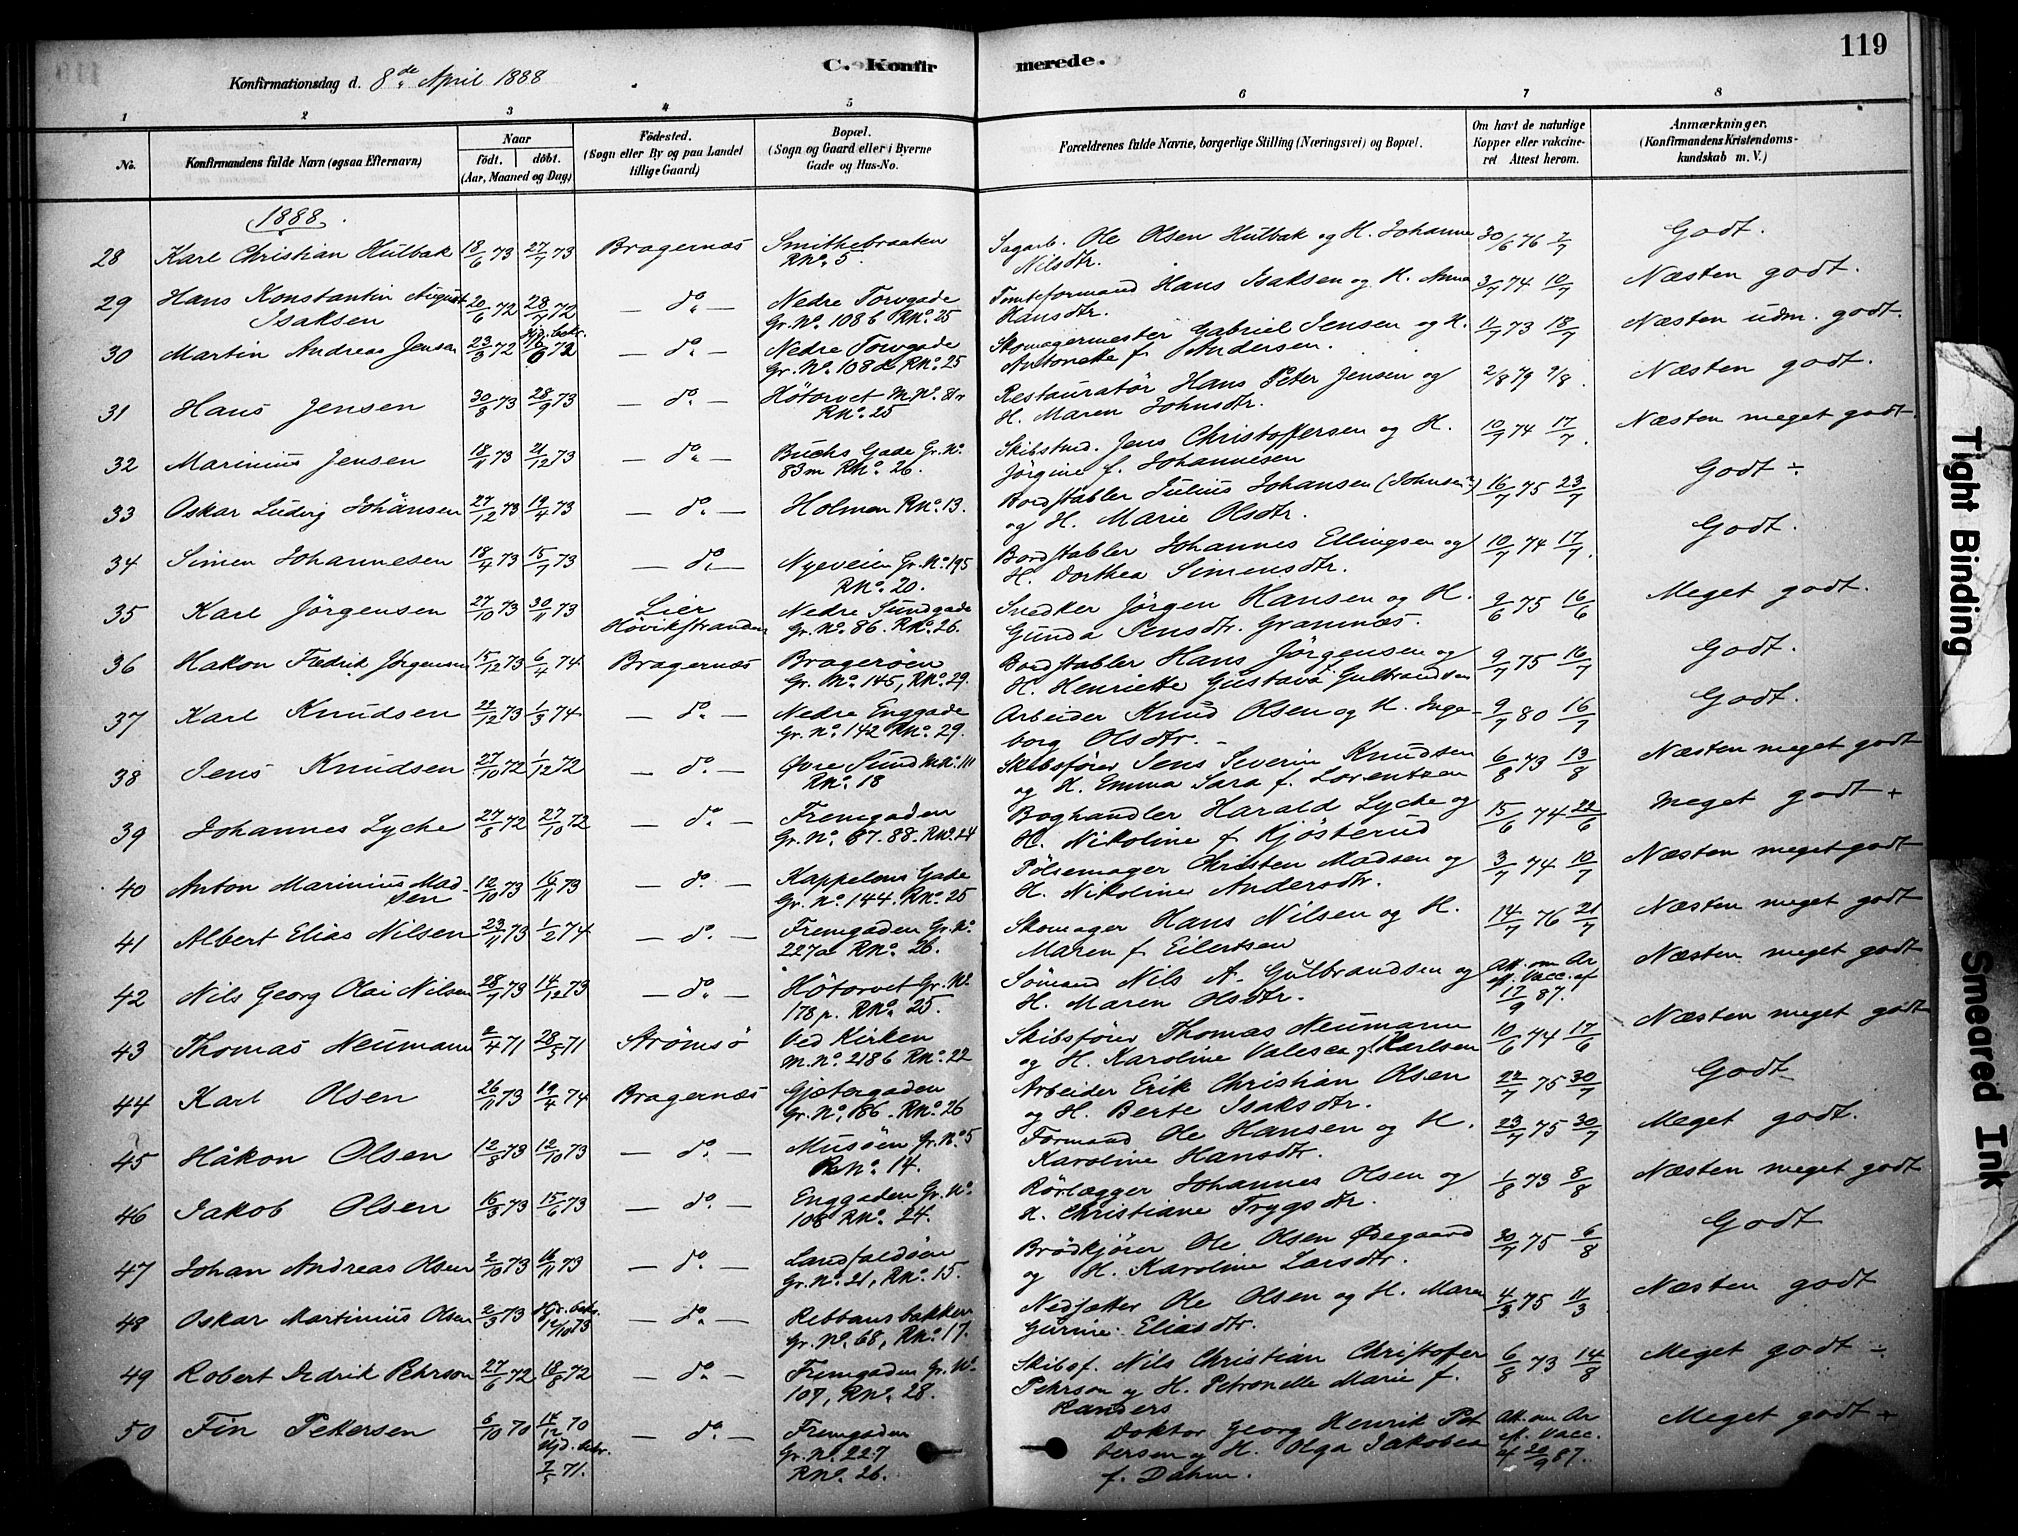 119
Konfirmationsdag d. 8de April 1888
C. Konfirmerede.
1 2 3 4 5 6 7 8
No. Konfirmandens fulde Navn (ogsaa Efternavn) Naar født. døbt. (Aar, Maaned og Dag) Födested. (Sogn eller By og paa Landet tillige Gaard) Bopæl. (Sogn og Gaard eller i Byerne Gade og Hus-No. Forældrenes fulde Navne, borgerlige Stilling (Næringsvei) og Bopæl. Om havt de naturlige Kopper eller vakcineret Attest herom. Anmærkninger. (Konfirmandens Kristendomskundskab m. V.)
1888.
28 Karl Christian Hulbak 18/6 73 27/7 73 Bragernæs Smithebraaten RNo. 5. Sagarb. Ole Olsen Hulbak og H. Johanne Nilsdtr. 30/6 76 7/7 Godt.
29 Hans Konstantin August Isaksen 20/6 72 28/7 72 — do. — Nedre Torvgade Gr. No. 108b RNo. 25 Tomteformand Hans Isaksen og H. Anna Hansdtr. 3/7 74 10/7 Næsten godt.
30 Martin Andreas Jensen 23/3 72 Hjd. bekr. 72 — do. — Nedre Torvgade Gr. No. 108d RNo. 25 Skomagermester Gabriel Jensen og H. Antonette f. Andersen. 11/7 73 18/7 Næsten udm. godt.
31 Hans Jensen 30/8 73 28/9 73 — do. — Høtorvet RNo. 25 Restauratør Hans Peter Jensen og H. Maren Johnsdtr. 2/8 79 9/8. Næsten godt.
32 Marinius Jensen 18/11 73 21/12 73 — do. — Buchs Gade Gr. No. 83m RNo. 26. Skibstmd. Jens Christoffersen og H. Jörgine f. Johannesen 10/7 74 17/7. Næsten meget godt.
33 Oskar Ludvig Johansen 27/12 73 19/4 73 — do. — Holmen RNo. 13. Bordstabler Julius Johansen (Johnsen?) og H. Marie Olsdtr. 16/7 75 23/7 Godt ÷
34 Simen Johannesen 18/4 73 15/7 73 — do. — Nyeveien Gr. No. 195 RNo. 20. Bordstabler Johannes Ellingsen og H. Dorthea Simensdtr. 10/7 74 17/7. Godt.
35 Karl Jörgensen 27/10 73 30/11 73 Lier Høvikstranden Nedre Sundgade Gr. No. 86. RNo. 26. Snedker Jörgen Hansen og H. Gunda Jensdtr. Gramnæs. 9/6 75 16/6 Meget godt.
36 Hakon Fredrik Jørgensen 15/12 73 6/4 74 Bragernæs Bragerøen Gr. No. 145, RNo. 29. Bordstabler Hans Jörgensen og H. Henriette Gustava f. Gulbrandsen 9/7 75 16/7 Godt.
37 Karl Knudsen 22/12 73 1/3 74 — do. — Nedre Enggade Gr. No. 142 RNo. 29. Arbeider Knud Olsen og H. Ingeborg Olsdtr. 9/7 80 16/7 Godt.
38 Jens Knudsen 27/10 72 1/12 72 — do. — Øvre Sund MNo. 111 RNo. 18 Skibsfører Jens Severin Knudsen og H. Emma Sara f. Lorentzen 6/8 73 13/8 Næsten meget godt
39 Johannes Lyche 27/8 72 27/10 72 — do. — Fremgaden Gr. No. 87. 88. RNo. 24 Boghandler Harald Lyche og H. Nikoline f. Kjösterud 15/6 74 22/6 Meget godt +
40 Anton Marinius Madsen 12/10 73 16/11 73 — do. — Kappelens Gade Gr. No. 144. RNo. 25 Pølsemager Christen Madsen og H. Nikoline Andersdtr. 3/7 74 10/7 Næsten meget godt
41 Albert Elias Nilsen 23/11 73 1/2 74 — do. — Fremgaden Gr. No. 227a RNo. 26. Skomager Hans Nilsen og H. Maren f. Eilertsen 14/7 76 21/7 Næsten meget godt
42 Nils Georg Olai Nilsen 28/7 73 14/12 73 — do. — Høtorvet Gr. No. 178p. RNo. 25. Sömand Nils A. Gulbrandsen og H. Maren Olsdtr. Att. om Vacc. af 17/9 87. Næsten meget godt
43 Thomas Neumann 2/4 71 28/5 71 Strömsö Ved Kirken M.No. 218b RNo. 22 Skibsfører Thomas Neumann og H. Karoline Valesca f. Karlsen 10/6 74 17/6 Næsten meget godt
44 Karl Olsen 26/11 73 19/4 74 Bragernæs Gjetergaden Gr. No. 186. RNo. 26 Arbeider Erik Christian Olsen og H. Berte Isaksdtr. 22/7 75 30/7 Godt
45 Håkon Olsen 12/8 73 12/10 73 — do. — Musöen Gr. No. 5 RNo. 14. Formand Ole Hansen og H. Karoline Hansdtr. 23/7 75 30/7 Meget godt.
46 Jakob Olsen 16/3 73 15/6 73 — do. — Enggaden Gr. No. 108 RNo. 24. Rörlægger Johannes Olsen og H. Christiane Trygsdtr. 1/8 73 8/8 Næsten meget godt
47 Johan Andreas Olsen 2/10 73 16/11 73 — do. — Landfaldöen Gr. No. 21, RNo. 15. Brödkjører Ole Olsen Ødegaard og H. Karoline Larsdtr. 30/7 75 6/8 Godt
48 Oskar Martinius Olsen 2/3 73 Hjd. bekr. 12/10 73 — do. — Rebbansbakken Gr. No. 68, RNo. 17. Nedsætter Ole Olsen og H. Maren Gurine Eliasdtr. 4/3 75 11/3 Næsten godt
49 Robert Fredrik Pehrson 27/6 72 18/8 72 — do. — Fremgaden Gr. No. 107, RNo. 28. Skibsf. Nils Christian Christofer Pehrson og H. Petronelle Marie f. Randers 6/8 73 14/8 Meget godt ÷
50 Fin Pettersen 6/10 70 14/12 70 Hjd. bekr. 71. — do. — Fremgaden Gr. No. 227 RNo. 26. Doktor Georg Henrik Pettersen og H. Olga Jakobea f. Dahm. Att. om Vacc. af 20/9 87. Meget godt +
Tight Binding
Smeared Ink